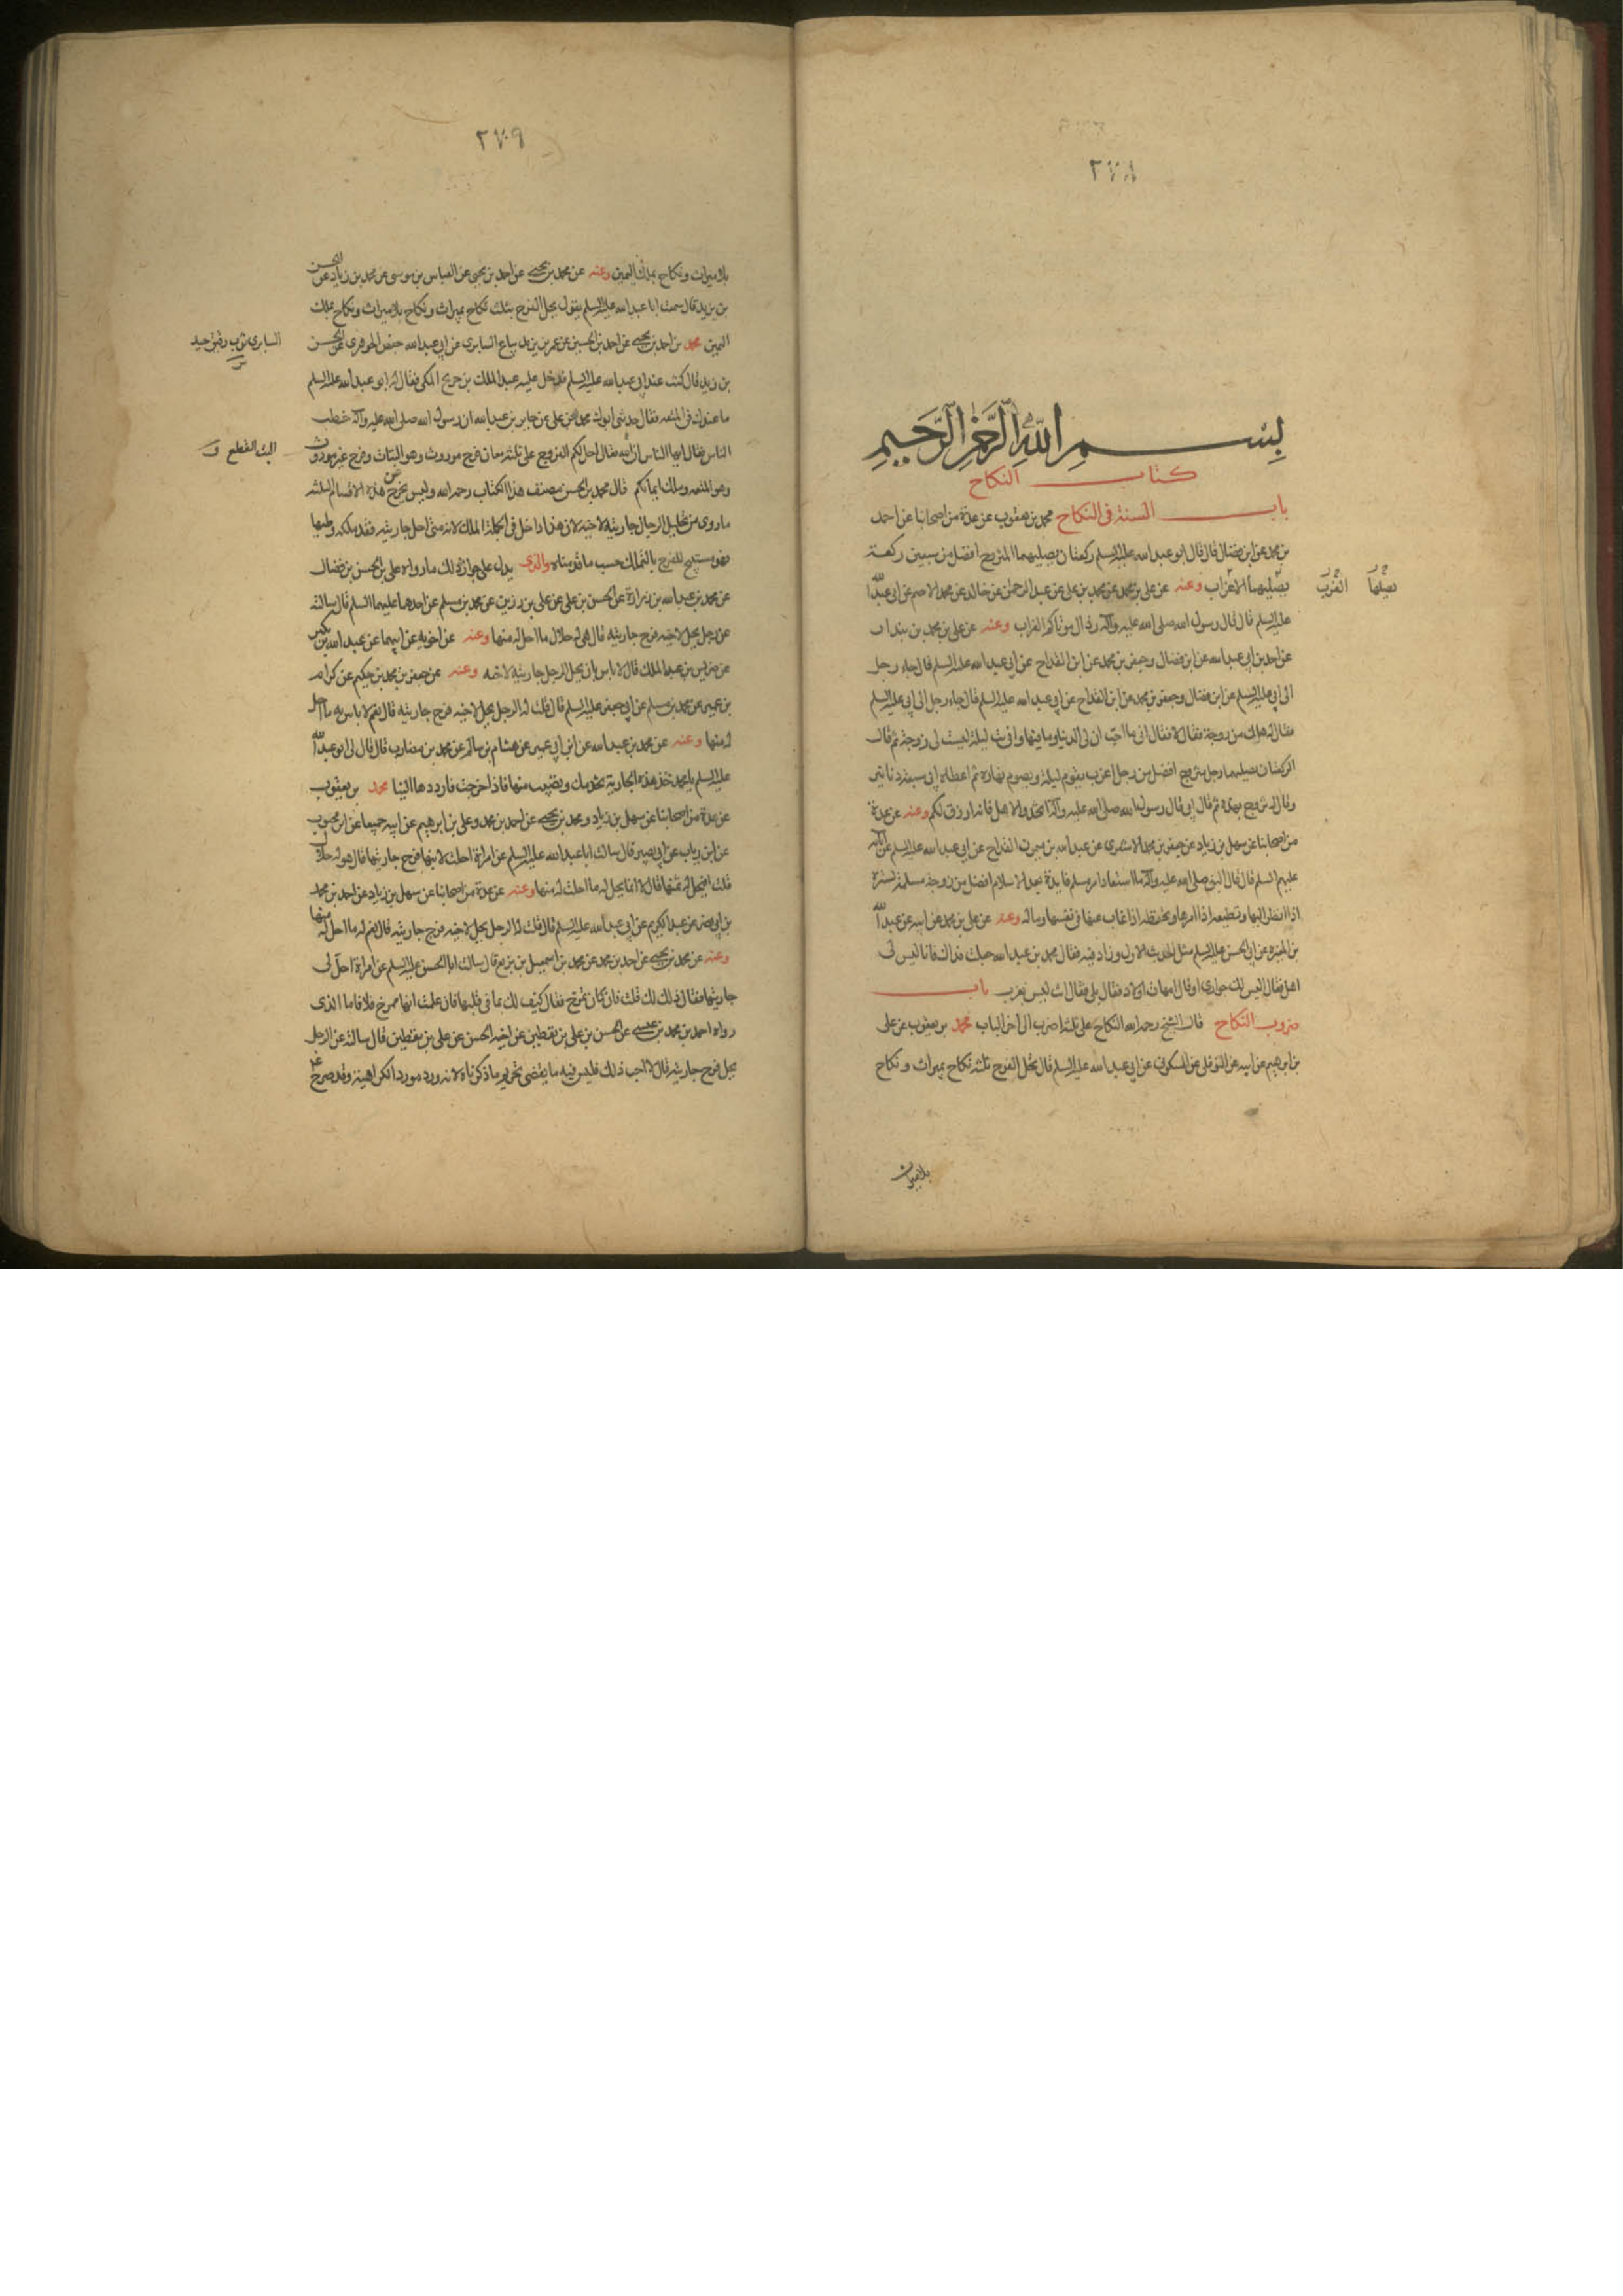 ٢٧٨
بسم الله الرحمن الرحيم
كتاب النكاح
باب السنة في النكاح محمد بن يعقوب عن عدة من اصحابنا عن احمد
بن محمد عن ابن فضال قال قال ابو عبد الله عليه السلم ركعتان يصليهما المتزوج افضل من سبعين ركعة
يصليهما الاعزاب وعنه عن علي بن محمد عن محمد بن علي عن عبد الرحمن بن خالد عن محمد الاصم عن ابي عبد الله
عليه السلم قال قال رسول الله صلى الله عليه وآله رذال موتاكم العزاب وعنه عن علي بن محمد بن بندار
عن احمد بن ابي عبد الله عن ابن فضال وجعفر بن محمد عن ابن القداح عن ابي عبد الله عليه السلم قال جاء رجل
الى ابي عليه السلم عن ابن فضال وجعفر بن محمد عن ابن القداح عن ابي عبد الله عليه السلم قال جاء رجل الى ابي عليه السلم
فقال له هل لك من زوجة فقال لا فقال ابي ما احب ان لي الدنيا وما فيها واني بت ليلة ليست لي زوجة ثم قال
الركعتان يصليهما رجل متزوج افضل من رجل اعزب يقوم ليله ويصوم نهاره ثم اعطاه ابي سبعة دنانير
وقال له تزوج بهذه ثم قال ابي قال رسول الله صلى الله عليه وآله اتخذوا الاهل فانه ارزق لكم وعنه عن عدة
من اصحابنا عن سهل بن زياد عن جعفر بن محمد الاشعري عن عبد الله بن ميمون القداح عن ابي عبد الله عليه السلم عن آبائه
عليهم السلم قال قال النبي صلى الله عليه وآله ما استفاد امرء مسلم فايدة بعد الاسلام افضل من زوجة مسلمة تسره
اذا نظر اليها وتطيعه اذا امرها وتحفظه اذا غاب عنها في نفسها وماله وعنه عن علي بن محمد عن ابيه عن عبد الله
بن المغيرة عن ابي الحسن عليه السلم مثل الحديث الاول وزاد فيه فقال محمد بن عبد الله جعلت فداك فانا ليس لي
اهل فقال اليس لك جواري او قال امهات اولاد فقال بلى فقال انت ليس بعزب باب
ضروب النكاح قال الشيخ رحمه الله النكاح على ثلثة اضرب الى آخر الباب محمد بن يعقوب عن علي
بن ابرهيم عن ابيه عن النوفلي عن السكوني عن ابي عبد الله عليه السلم قال تحل الفرج ثلثة نكاح بميراث ونكاح
بلا ميراث
يصليها العزب
٢٧٩
بلا ميراث ونكاح بملك اليمين وعنه عن محمد بن يحيى عن احمد بن يحيى عن العباس بن موسى عن محمد بن زياد عن الحسن
بن زيد قال سمعت ابا عبد الله عليه السلم يقول يحل الفرج بثلث نكاح بميراث ونكاح بلا ميراث ونكاح بملك
اليمين محمد بن احمد بن يحيى عن احمد بن الحسين عن عمر بن يزيد بياع السابري عن ابي عبد الله جعفر الجوهري عن الحسن
بن زيد قال كنت عند ابي عبد الله عليه السلم فدخل عليه عبد الملك بن جريج المكي فقال له ابو عبد الله عليه السلم
ما عندك في المتعه فقال حدثني ابوك محمد بن علي عن جابر بن عبد الله ان رسول الله صلى الله عليه وآله خطب
الناس فقال ايها الناس ان الله فقال احل لكم الفروج على ثلثة معان فرج موروث وهو البتات وفرج غير موروث
وهو المتعه وملك ايمانكم قال محمد بن الحسن مصنف هذا الكتاب رحمه الله وليس يخرج عن هذه الاقسام الثلثه
ما روي من تحليل الرجل جاريته لاخيه لان هذا داخل في جملة الملك لانه متى احل جاريته فقد ملكه وطيها
فهو مستبيح للفرج بالتملك حسب ما قدمناه والذي يدل على جواز ذلك ما رواه علي بن الحسن بن فضال
عن محمد بن عبد الله بن زرارة عن الحسن بن علي عن علي بن رزين عن محمد بن مسلم عن احدهما عليهما السلم قال سالته
عن رجل يحل لاخيه فرج جاريته قال هي له حلال ما احل له منها وعنه عن اخويه عن ابيهما عن عبد الله بن بكير
عن ضريس بن عبد الملك قال لا باس بان يحل الرجل جاريته لاخيه وعنه عن جعفر بن محمد بن حكيم عن كرام
بن عمرو عن محمد بن مسلم عن ابي جعفر عليه السلم قال قلت له الرجل يحل لاخيه فرج جاريته قال نعم لا باس به ما احل
له منها وعنه عن محمد بن عبد الله عن ابن ابي عمير عن هشام بن سالم عن محمد بن مضارب قال قال لي ابو عبد الله
عليه السلم يا محمد خذ هذه الجارية تخدمك وتصيب منها فاذا خرجت فارددها الينا محمد بن يعقوب
عن عدة من اصحابنا عن سهل بن زياد ومحمد بن يحيى عن احمد بن محمد وعلي بن ابرهيم عن ابيه جميعا عن ابن محبوب
عن ابن رياب عن ابي بصير قال سالت ابا عبد الله عليه السلم عن امراة احلت لابنها فرج جاريتها قال هو له حلال
قلت افيحل له ثمنها قال لا انما يحل له ما احلت له منها وعنه عن عدة من اصحابنا عن سهل بن زياد عن احمد بن محمد
بن ابي نصر عن عبد الكريم عن ابي عبد الله عليه السلم قال قلت له الرجل يحل لاخيه فرج جاريته قال نعم له ما احل له منها
وعنه عن محمد بن يحيى عن احمد بن محمد عن محمد بن اسمعيل بن بزيع قال سالت ابا الحسن عليه السلم عن امراة احل لي
جاريتها فقال ذلك لك قلت فان كان تمزح فقال كيف لك بما في قلبها فان علمت انها تمزح فلا فاما الذي
رواه احمد بن محمد بن عيسى عن الحسن بن علي بن يقطين عن اخيه الحسين عن علي بن يقطين قال سالته عن الرجل
يحل فرج جاريته قال لا احب ذلك فليس فيه ما يقتضي تحريم ما ذكرناه لانه ورد مورد الكراهية وقد صرح ع
السابري ثوب رقيق جيد
البت القطع